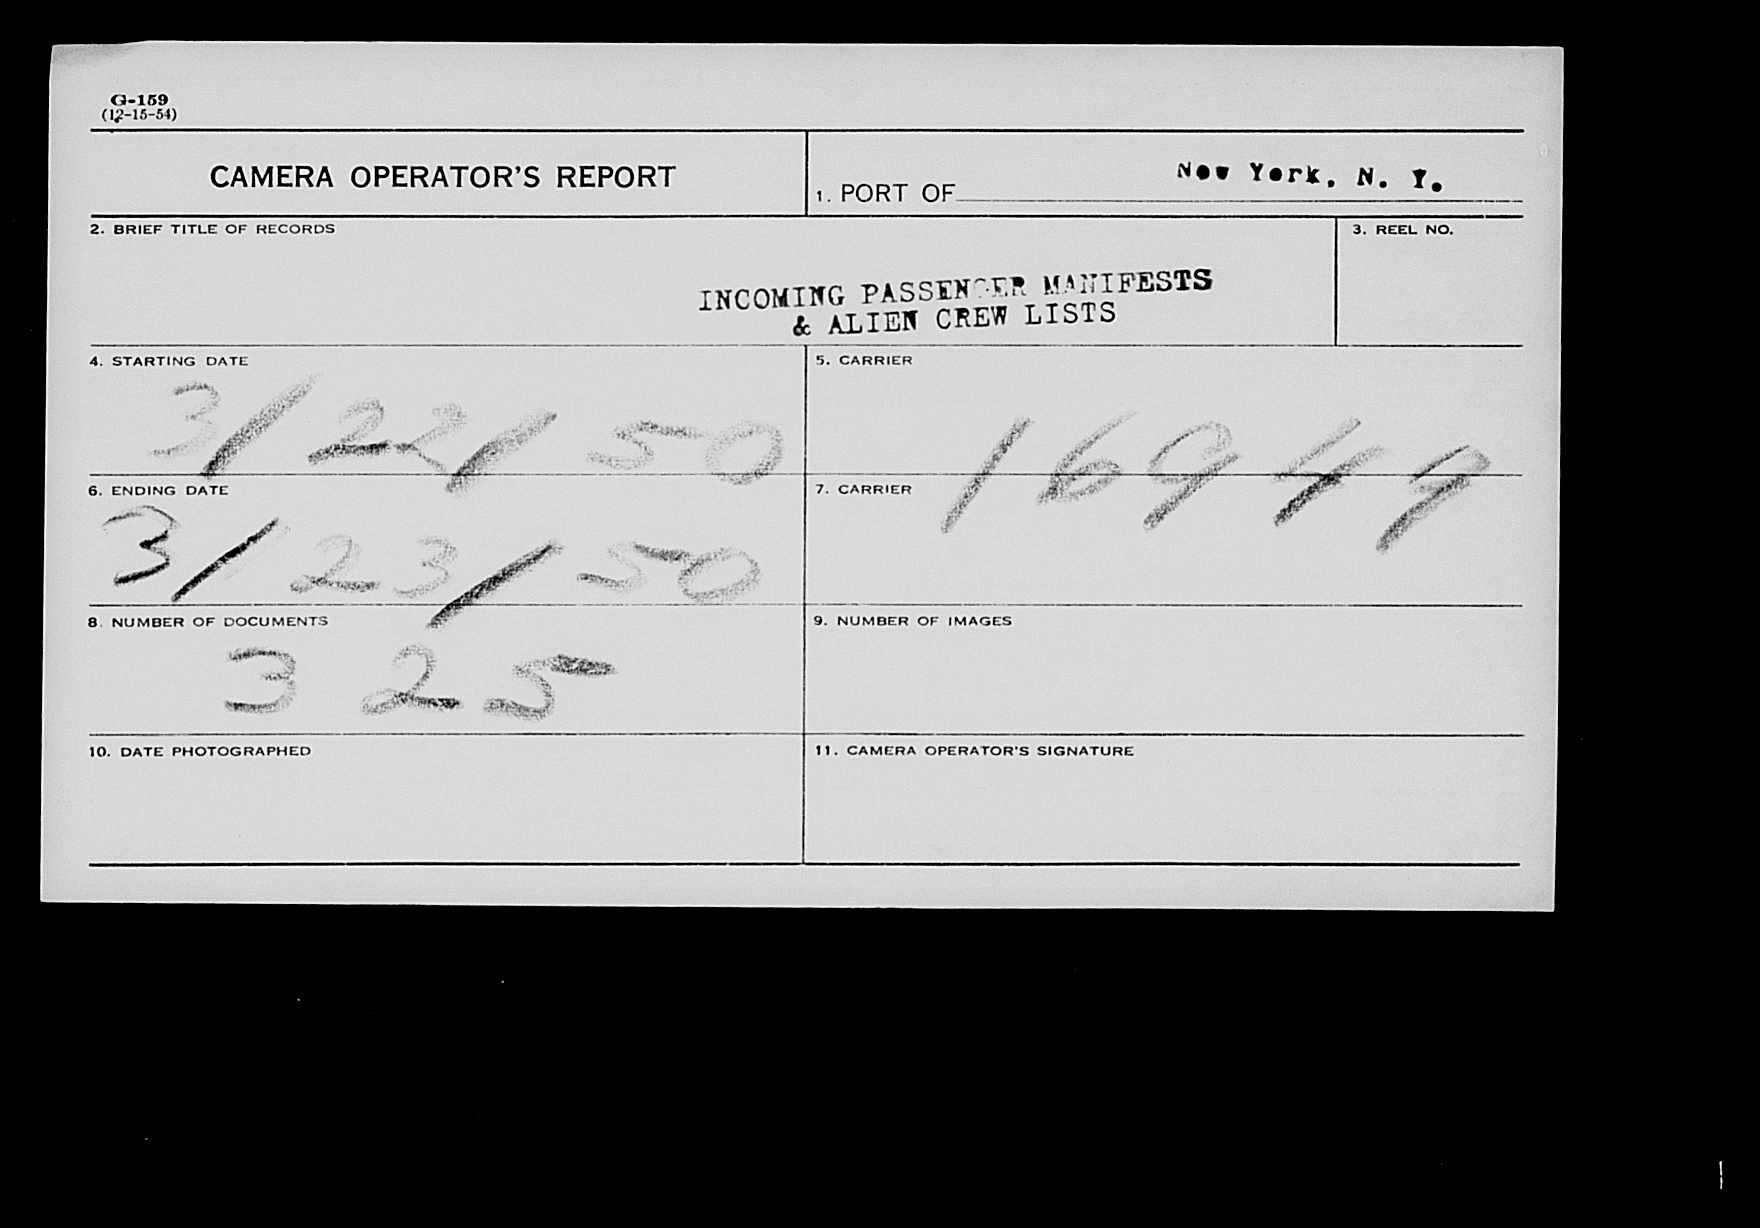 G-159
(12-15-54)
CAMERA OPERATOR'S REPORT
1. PORT OF New York, N. Y.
2. BRIEF TITLE OF RECORDS
INCOMING PASSENGER MANIFESTS
& ALIEN CREW LISTS
3. REEL NO.
4. STARTING DATE
3/22/50
5. CARRIER
16949
6. ENDING DATE
3/23/50
7. CARRIER
8. NUMBER OF DOCUMENTS
325
9. NUMBER OF IMAGES
10. DATE PHOTOGRAPHED
11. CAMERA OPERATOR'S SIGNATURE